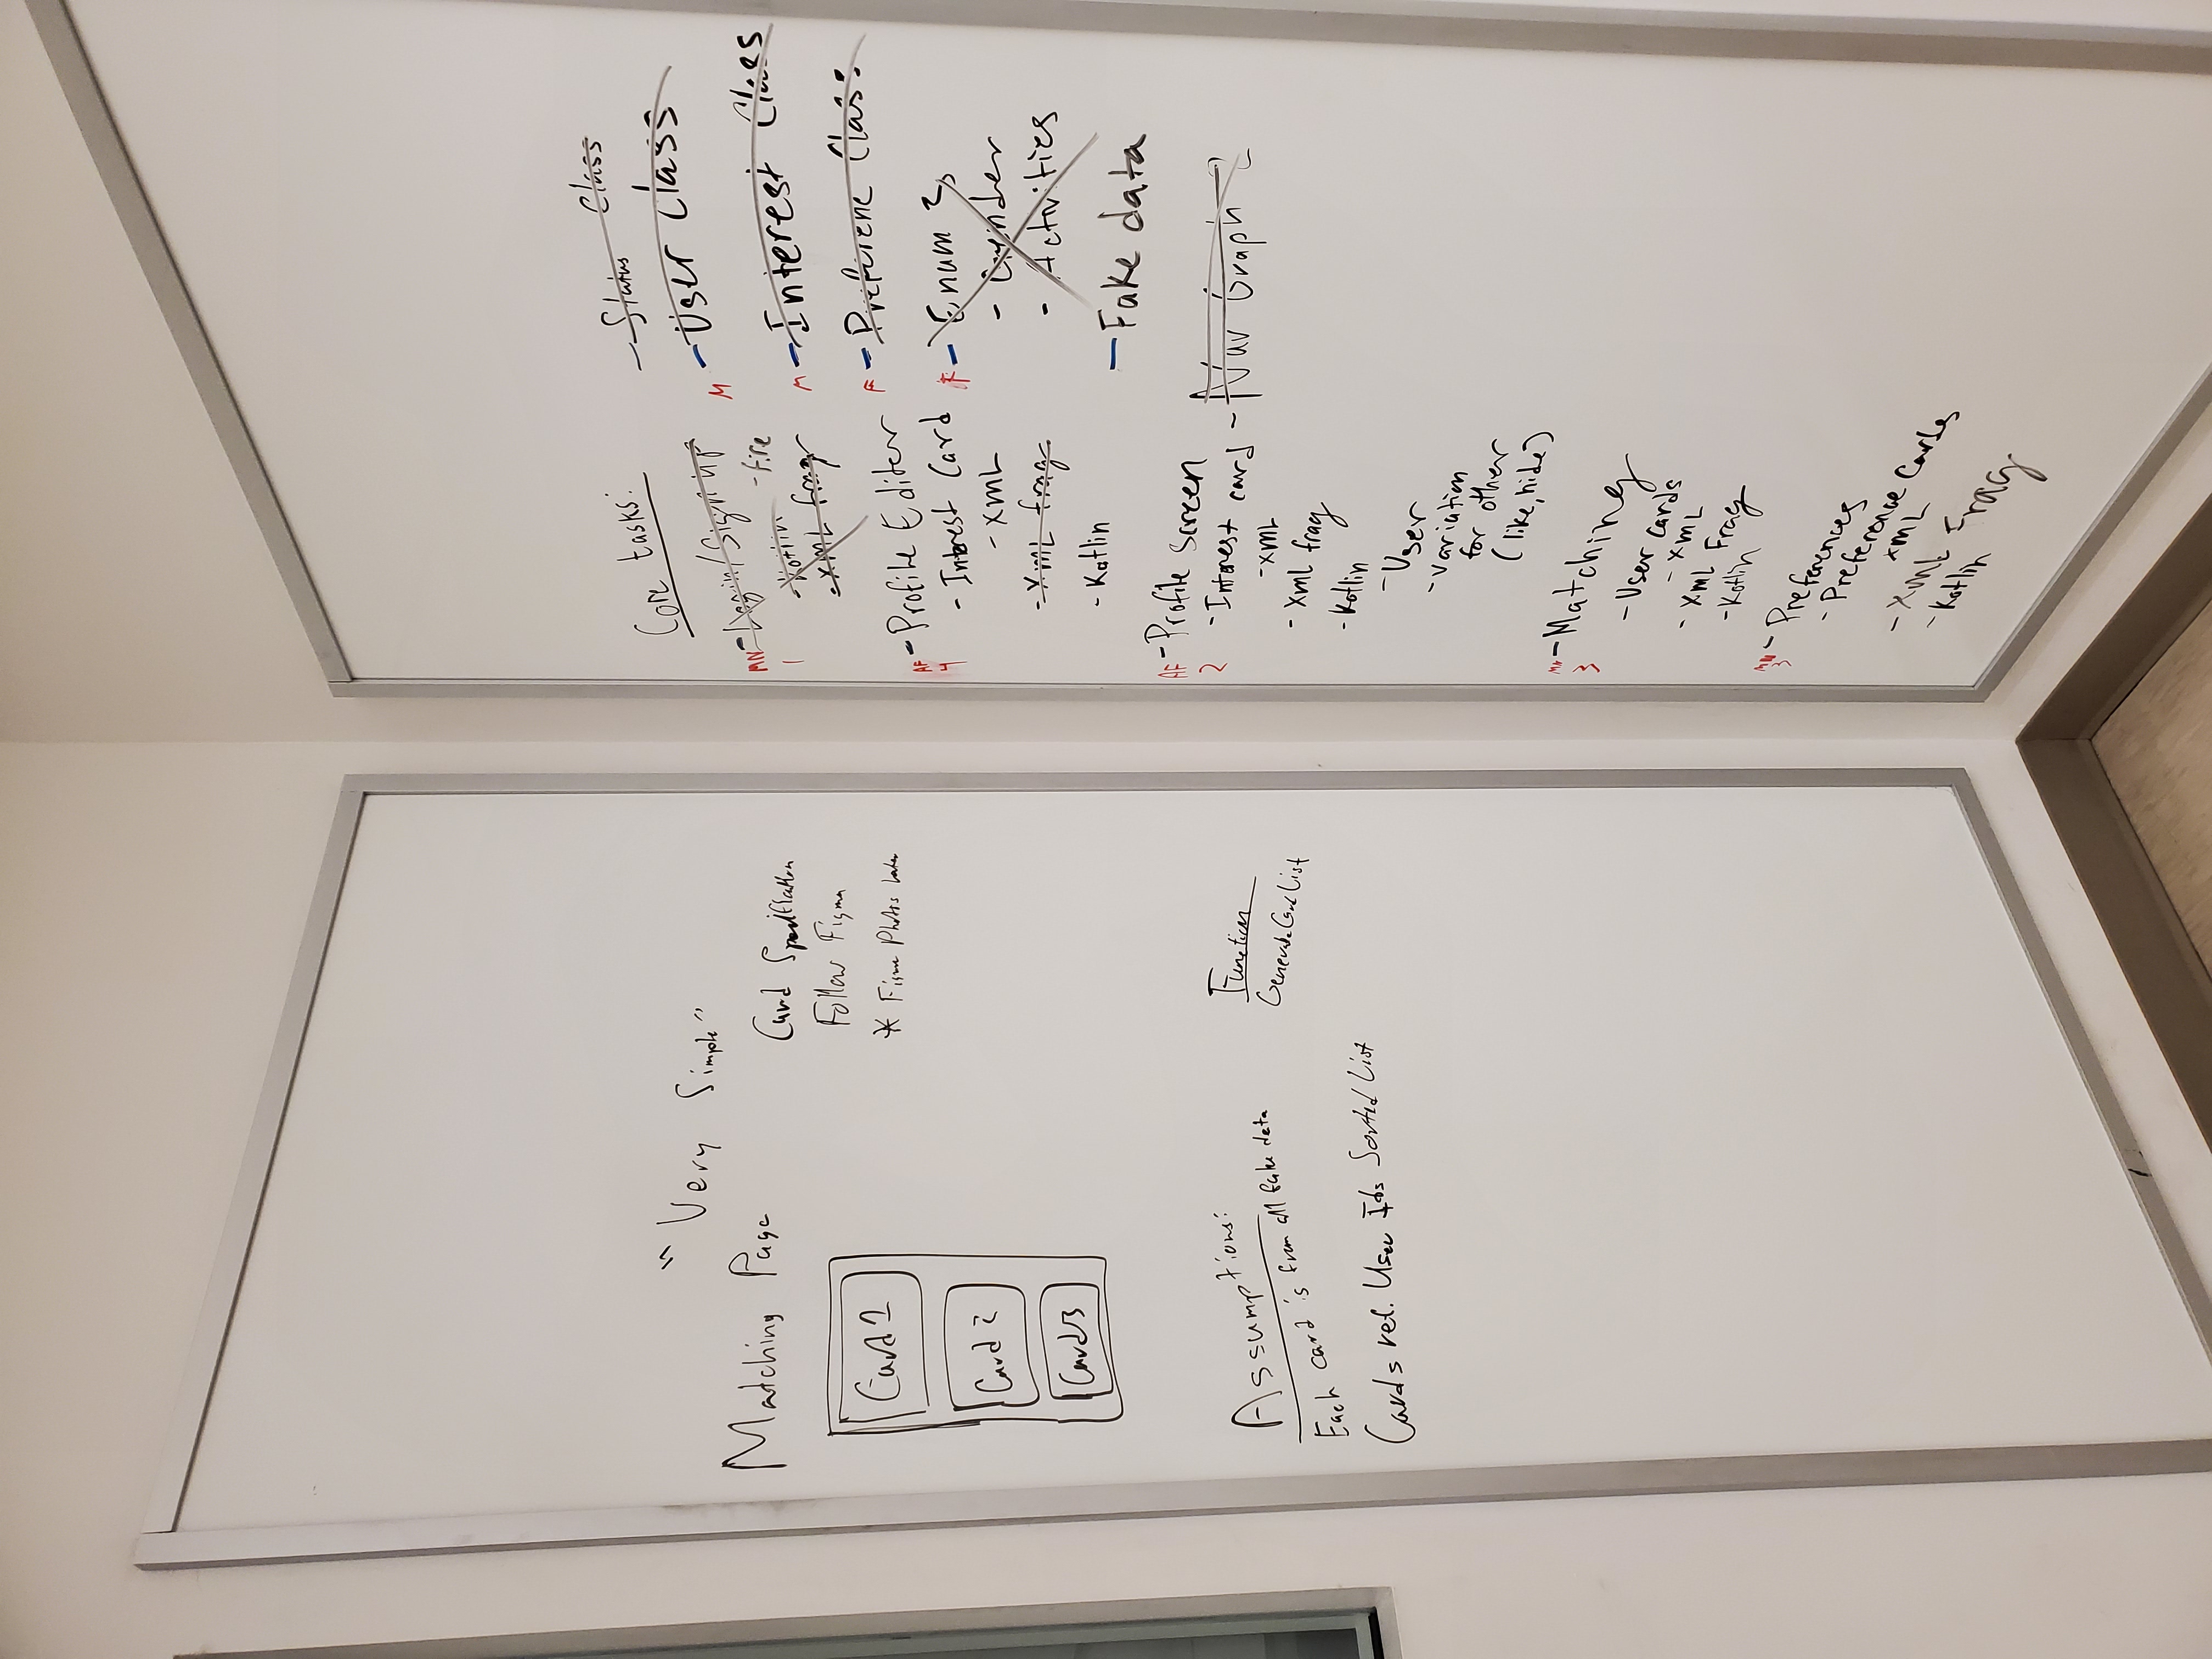 "Very Simple"
Matching Page
Card 1
Card 2
Card 3
Card Specification
Follow Figma
* Figma Photos Later
Assumptions:
Each card is from all fake data
Cards ret. User Ids Sorted List
Function
GenerateCardList
Core tasks:
MN - Login/Signup
1
- fire
- Kotlin
- XML frag
AF - Profile Editer
4
- Interest Card
- XML
- XML frag
- Kotlin
AF - Profile Screen
2
- Interest card
- XML
- XML frag
- Kotlin
- User
- variation
for other
(like, hide)
MN - Matching
3
- User cards
- XML
- XML Frag
- Kotlin
MN - Preferences
3
- Preference Cards
- XML
- XML Frag
- Kotlin
- Status Class
M - User Class
M - Interest Class
F - Preference Class
AF - Enum 2
- Gender
- Activities
- Fake data
- Nav Graph